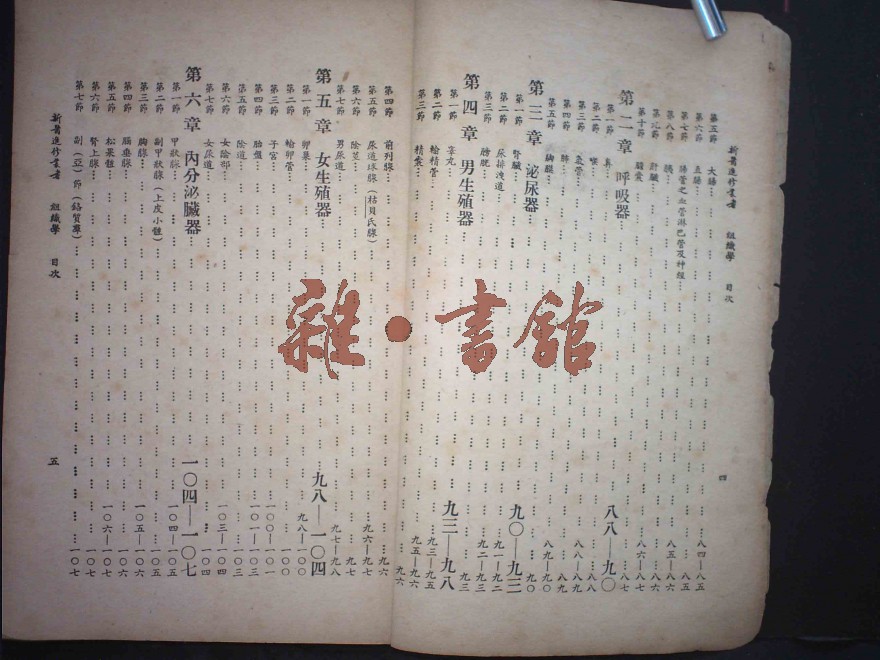 新醫進修叢書 組織學 目次
四
第五節 大腸 八四—八五
第六節 直腸 八五
第七節 腸管之血管淋巴管及神經 八五
第八節 胰 八五—八六
第九節 肝臟 八六
第十節 膽囊 八六—八七
第二章 呼吸器 八八—九〇
第一節 鼻 八七
第二節 喉 八八
第三節 氣管 八八—八九
第四節 肺 八九
第五節 胸膜 八九—九〇
第三章 泌尿器 九〇—九三
第一節 腎臟 九〇
第二節 尿排洩道 九一—九二
第三節 膀胱 九二—九三
第四章 男生殖器 九三—九八
第一節 睾丸 九三
第二節 輸精管 九三—九五
第三節 精囊 九五—九六
雜·書館
第四節 前列腺 九六
第五節 尿道球腺(枯貝氏腺) 九六—九七
第六節 陰莖 九七
第七節 男尿道 九七—九八
第五章 女生殖器 九八—一〇四
第一節 卵巢 九八—一〇〇
第二節 輸卵管 一〇〇
第三節 子宮 一〇〇—一〇一
第四節 胎盤 一〇一—一〇三
第五節 陰道 一〇三
第六節 女陰部 一〇三—一〇四
第七節 女尿道 一〇四
第六章 內分泌臟器 一〇四—一〇七
第一節 甲狀腺 一〇四—一〇五
第二節 副甲狀腺(上皮小體) 一〇五
第三節 胸腺 一〇五—一〇六
第四節 腦垂腺 一〇六
第五節 松果體 一〇六—一〇七
第六節 腎上腺 一〇七
第七節 副(亞)節(鉻質羣) 一〇七
新醫進修叢書 組織學 目次
五